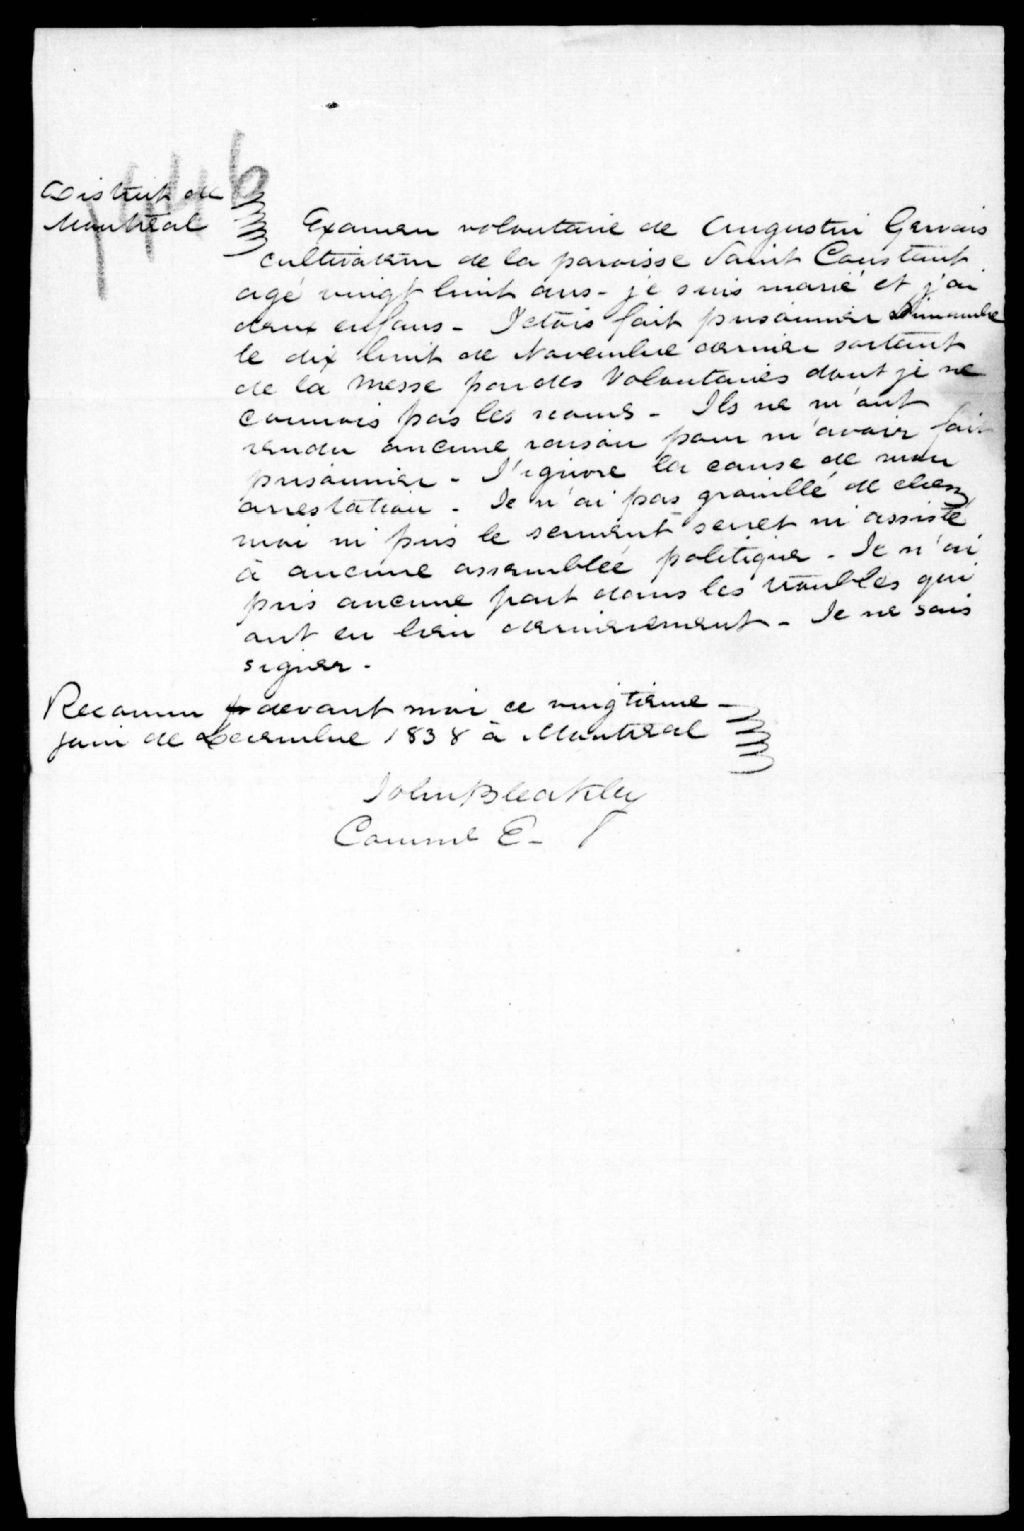 1446
District de
Montréal
Examen volontaire de Augustin Gervais
cultivateur de la paroisse Saint Constant
agé vingt huit ans - je suis marié et j'ai
deux enfans - J'etois fait prisonnier Dimanche
le dix huit de Novembre dernier sortant
de la messe par des Volontaires dont je ne
connois pas les noms - Ils ne m'ont
rendu aucune raison pour m'avoir fait
prisonnier - J'ignore la cause de mon
arrestation - Je n'ai pas grouillé de chez
moi ni pris le serment secret ni assisté
à aucune assemblée politique - Je n'ai
pris aucune part dans les troubles qui
ont eu lieu dernierement - Je ne sais
signer -
Reconnu devant moi ce vingtieme -
jour de Decembre 1838 à Montreal
John Bleakley
Comme E - P